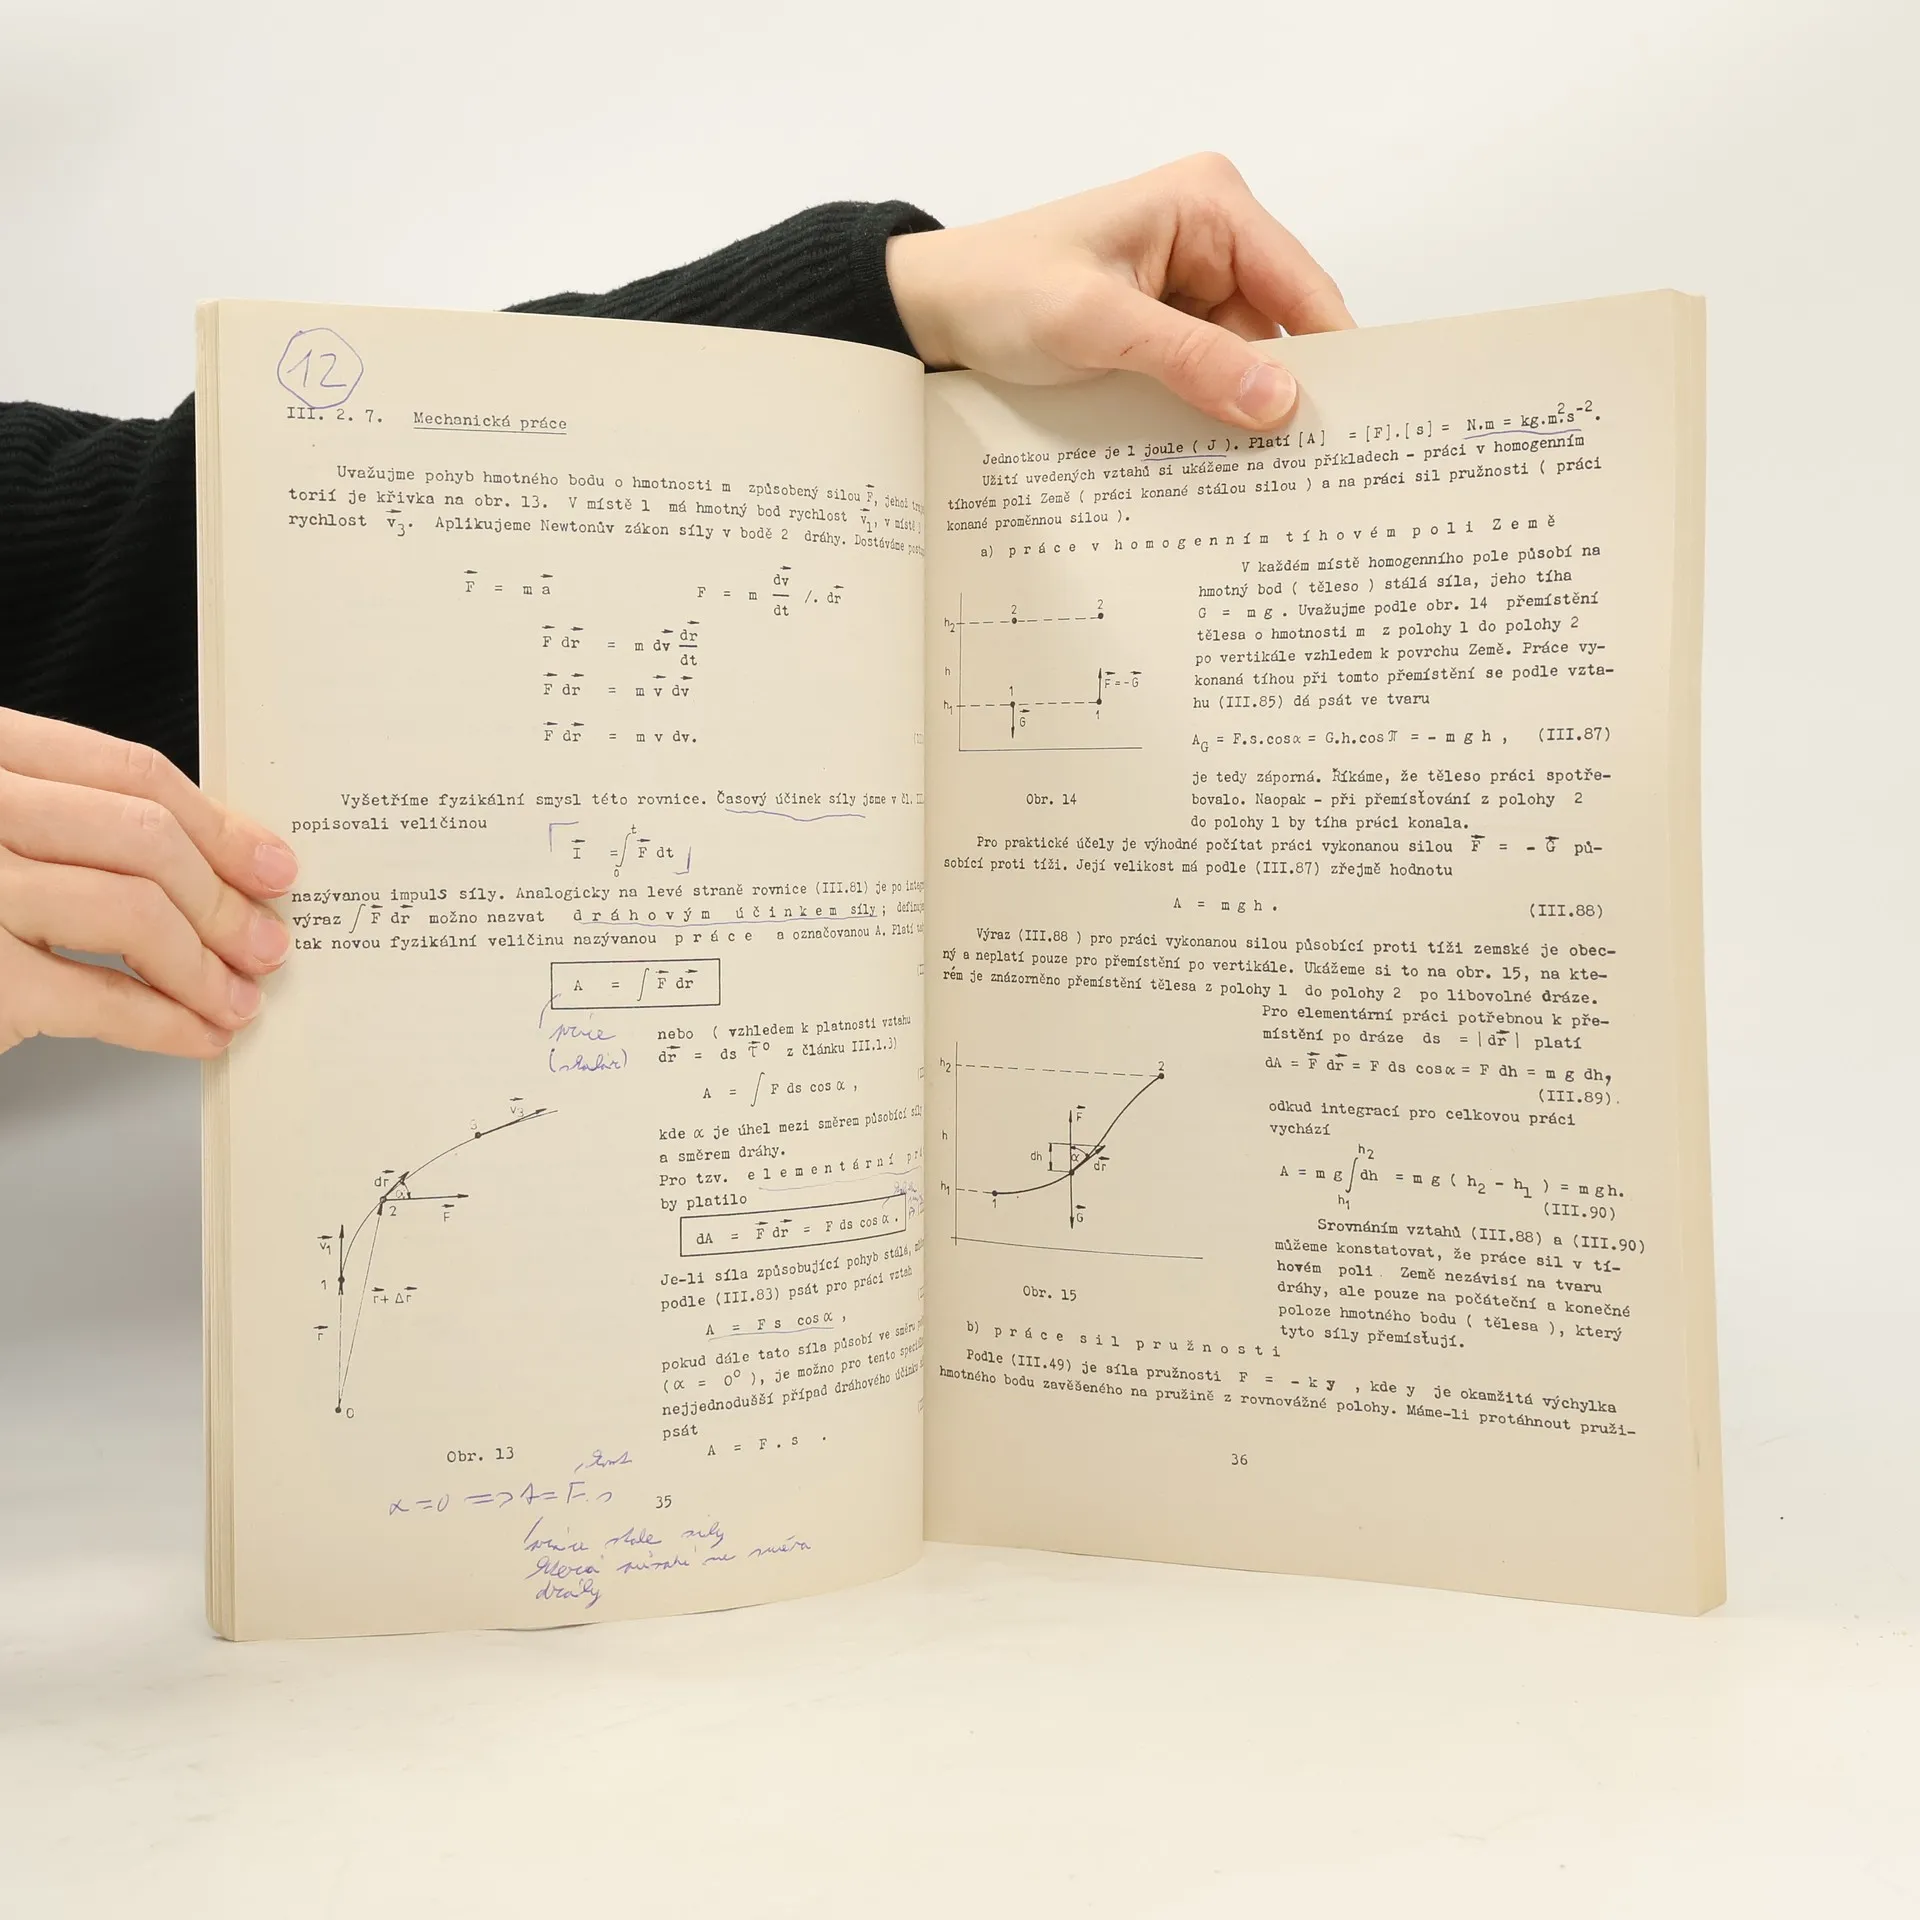 12
III. 2. 7. Mechanická práce
Uvažujme pohyb hmotného bodu o hmotnosti m způsobený silou F, jehož
torií je křivka na obr. 13. V místě 1 má hmotný bod rychlost v1, v místě
rychlost v3. Aplikujeme Newtonův zákon síly v bodě 2 dráhy. Dostáváme
F = m a F = m dv/dt /. dr
F dr = m dv dr/dt
F dr = m v dv
F dr = m v dv.
Vyšetříme fyzikální smysl této rovnice. Časový účinek síly jsme v čl.
popisovali veličinou
I = ∫ F dt
t
0
nazývanou impuls síly. Analogicky na levé straně rovnice (III.81) je po
výraz ∫ F dr možno nazvat dráhovým účinkem síly;
tak novou fyzikální veličinu nazývanou práce a označovanou A. Platí
A = ∫ F dr
práce
(skalár)
nebo ( vzhledem k platnosti vztahu
dr = ds τ° z článku III.1.3)
A = ∫ F ds cos α ,
kde α je úhel mezi směrem působící
a směrem dráhy.
Pro tzv. elementární
by platilo
dA = F dr = F ds cos α .
Je-li síla způsobující pohyb stálá,
podle (III.83) psát pro práci vztah
A = F s cos α ,
pokud dále tato síla působí ve směru
( α = 0° ), je možno pro tento
nejjednodušší případ dráhového účinku
psát
A = F . s .
v3
3
dr
α
2
F
v1
1
r + Δr
r
0
Obr. 13
α = 0 => A = F. s
35
práce stálé síly
která ve směru
dráhy
Jednotkou práce je 1 joule ( J ). Platí [A] = [F].[s] = N.m = kg.m².s⁻².
Užití uvedených vztahů si ukážeme na dvou příkladech - práci v homogenním
tíhovém poli Země ( práci konané stálou silou ) a na práci sil pružnosti ( práci
konané proměnnou silou ).
a) práce v homogenním tíhovém poli Země
V každém místě homogenního pole působí na
hmotný bod ( těleso ) stálá síla, jeho tíha
G = m g . Uvažujme podle obr. 14 přemístění
tělesa o hmotnosti m z polohy 1 do polohy 2
po vertikále vzhledem k povrchu Země. Práce vy-
konaná tíhou při tomto přemístění se podle vzta-
hu (III.85) dá psát ve tvaru
AG = F.s.cosα = G.h.cos π = - m g h , (III.87)
je tedy záporná. Říkáme, že těleso práci spotře-
bovalo. Naopak - při přemísťování z polohy 2
do polohy 1 by tíha práci konala.
h2
2
2
h
F=-G
h1
1
G
1
Obr. 14
Pro praktické účely je výhodné počítat práci vykonanou silou F = - G pů-
sobící proti tíži. Její velikost má podle (III.87) zřejmě hodnotu
A = m g h . (III.88)
Výraz (III.88 ) pro práci vykonanou silou působící proti tíži zemské je obec-
ný a neplatí pouze pro přemístění po vertikále. Ukážeme si to na obr. 15, na kte-
rém je znázorněno přemístění tělesa z polohy 1 do polohy 2 po libovolné dráze.
Pro elementární práci potřebnou k pře-
místění po dráze ds = | dr | platí
dA = F dr = F ds cosα = F dh = m g dh,
(III.89).
odkud integrací pro celkovou práci
vychází
A = m g ∫ dh = m g ( h2 - h1 ) = m g h.
h2
h1
(III.90)
Srovnáním vztahů (III.88) a (III.90)
můžeme konstatovat, že práce sil v tí-
hovém poli Země nezávisí na tvaru
dráhy, ale pouze na počáteční a konečné
poloze hmotného bodu ( tělesa ), který
tyto síly přemísťují.
h2
2
F
h
dh
α
dr
h1
1
G
Obr. 15
b) práce sil pružnosti
Podle (III.49) je síla pružnosti F = - k y , kde y je okamžitá výchylka
hmotného bodu zavěšeného na pružině z rovnovážné polohy. Máme-li protáhnout pruži-
36